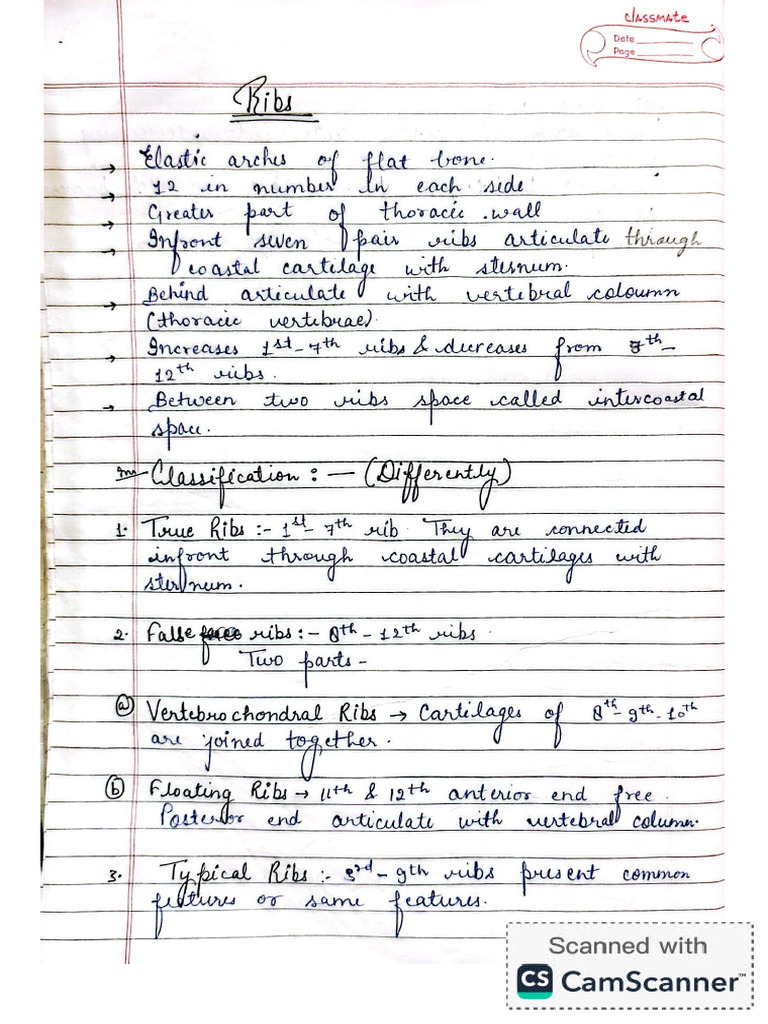 classmate
Date
Page
Ribs
→ Elastic arches of flat bone.
→ 12 in number in each side
→ Greater part of thoracic wall
→ Infront seven pair ribs articulate through
coastal cartilage with sternum.
→ Behind articulate with vertebral coloumn
(thoracic vertebrae).
→ Increases 1st-7th ribs & decreases from 7th-
12th ribs.
→ Between two ribs space called intercoastal
space.
Classification :- (Differently)
1. True Ribs :- 1st-7th rib They are connected
infront through coastal cartilages with
sternum.
2. False ribs :- 8th-12th ribs.
Two parts -
(a) Vertebrochondral Ribs → Cartilages of 8th-9th-10th
are joined together.
(b) Floating Ribs → 11th & 12th anterior end free.
Posterior end articulate with vertebral column.
3. Typical Ribs :- 3rd-9th ribs present common
features or same features.
Scanned with
CS CamScanner™